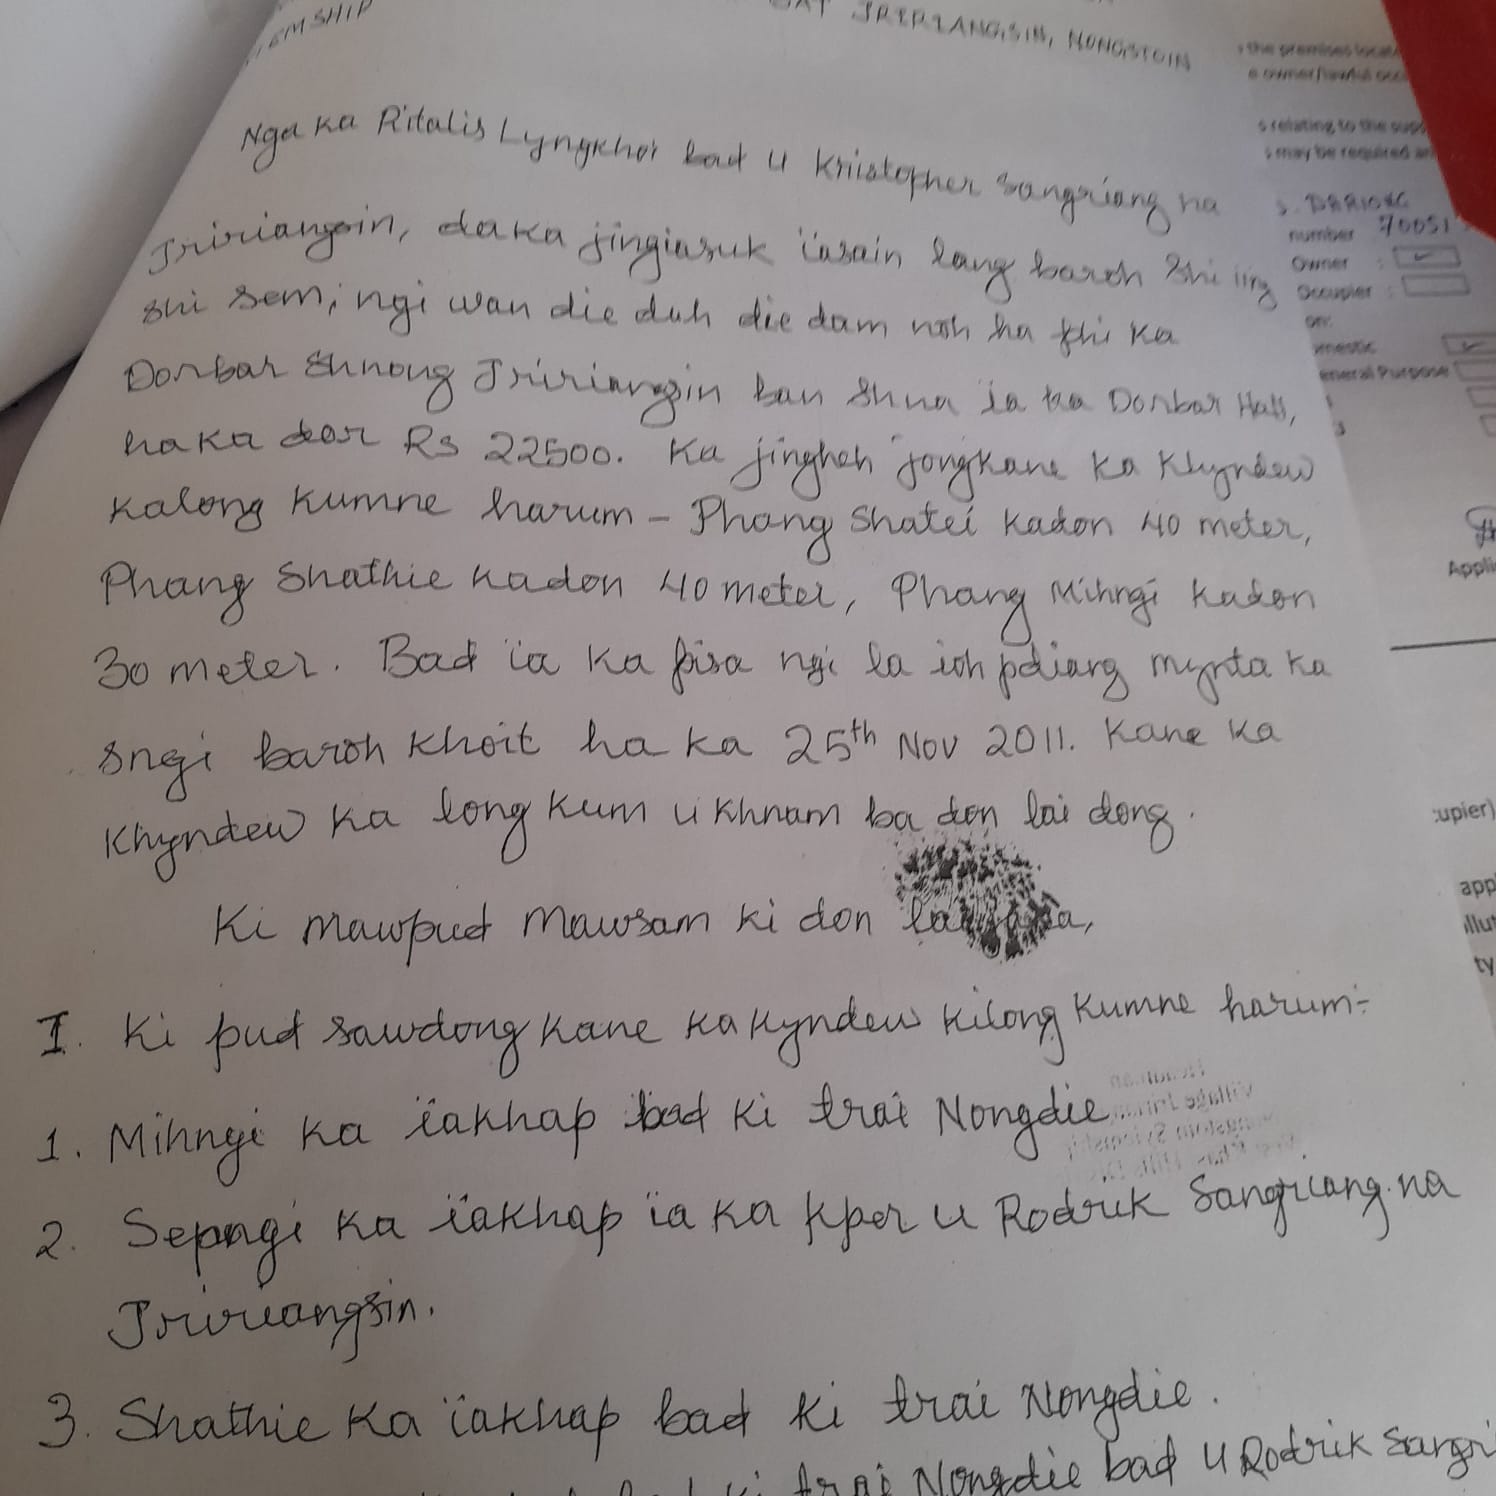 JRIRIANGSIN, NONGSTOIN
Nga ka Ritalis Lyngkhoi bad u Kristopher Sangriang na
Jririangsin, da ka jingiasuk ïasain lang baroh shi iing
shi sem, ngi wan die duh die dam noh ha phi ka
Dorbar Shnong Jririangsin ban shna ia ka Dorbar Hall,
ha ka dor Rs 22500. Ka jingheh jongkane ka Khyndew
kalong kumne harum - Phang Shatei kadon 40 meter,
Phang Shathie kadon 40 meter, Phang Mihngi kadon
30 meter. Bad ïa ka pisa ngi la ioh pdiang mynta ka
sngi baroh khoit ha ka 25th Nov 2011. Kane ka
Khyndew ka long kum u khnam ba don lai dong.
Ki mawpud mawsam ki don
I. Ki pud sawdong kane ka kyndew kilong kumne harum:-
1. Mihngi ka ïakhap bad ki trai Nongdie
2. Sepngi ka ïakhap ïa ka kper u Rodrik Sangriang na
Jririangsin.
3. Shathie ka ïakhap bad ki trai Nongdie.
ki trai Nongdie bad u Rodrik
the premises
relating to the
may be required
number 70051
Owner :
Occupier :
General Purpose